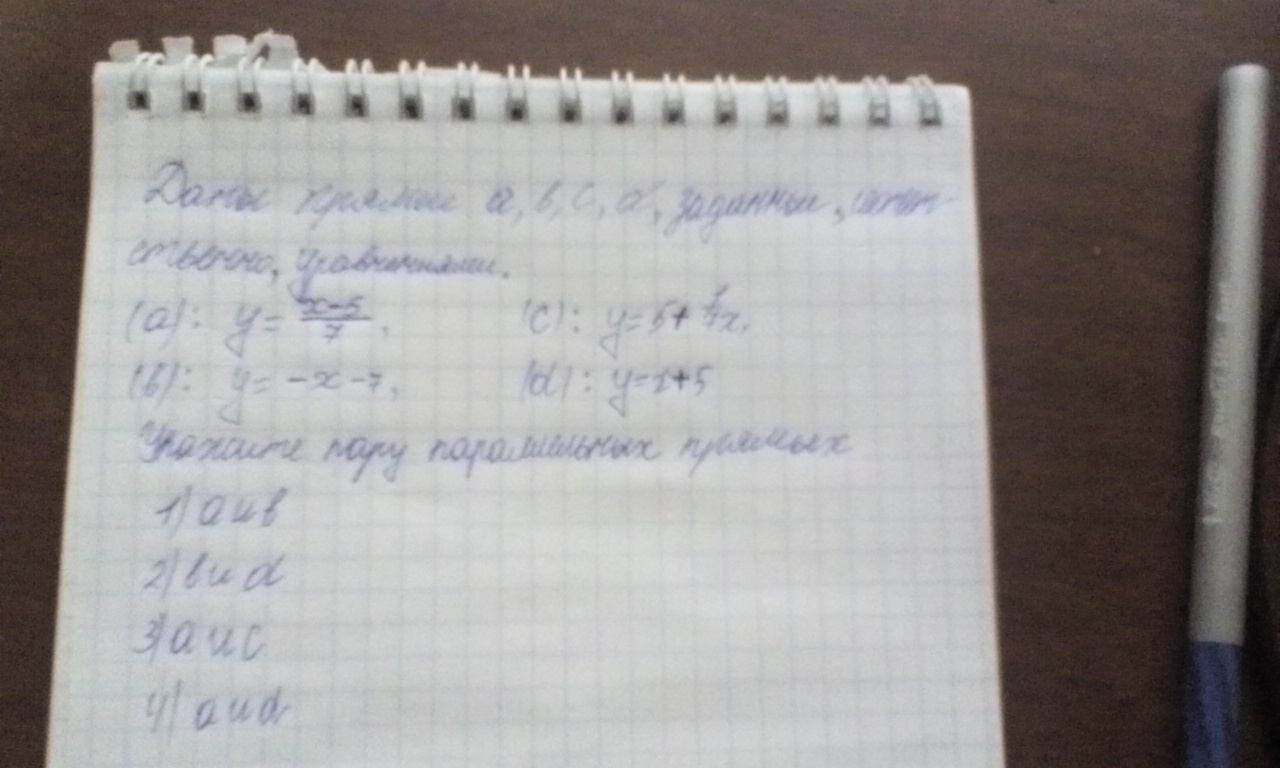 Даны прямые a, b, c, d, заданные, соответ-
ственно, уравнениями.
(a): y = \frac{x-5}{7}, (c): y = 5 + \frac{1}{7}x,
(b): y = -x - 7, (d): y = x + 5
Укажите пару параллельных прямых
1) a и b
2) b и d
3) a и c
4) a и d